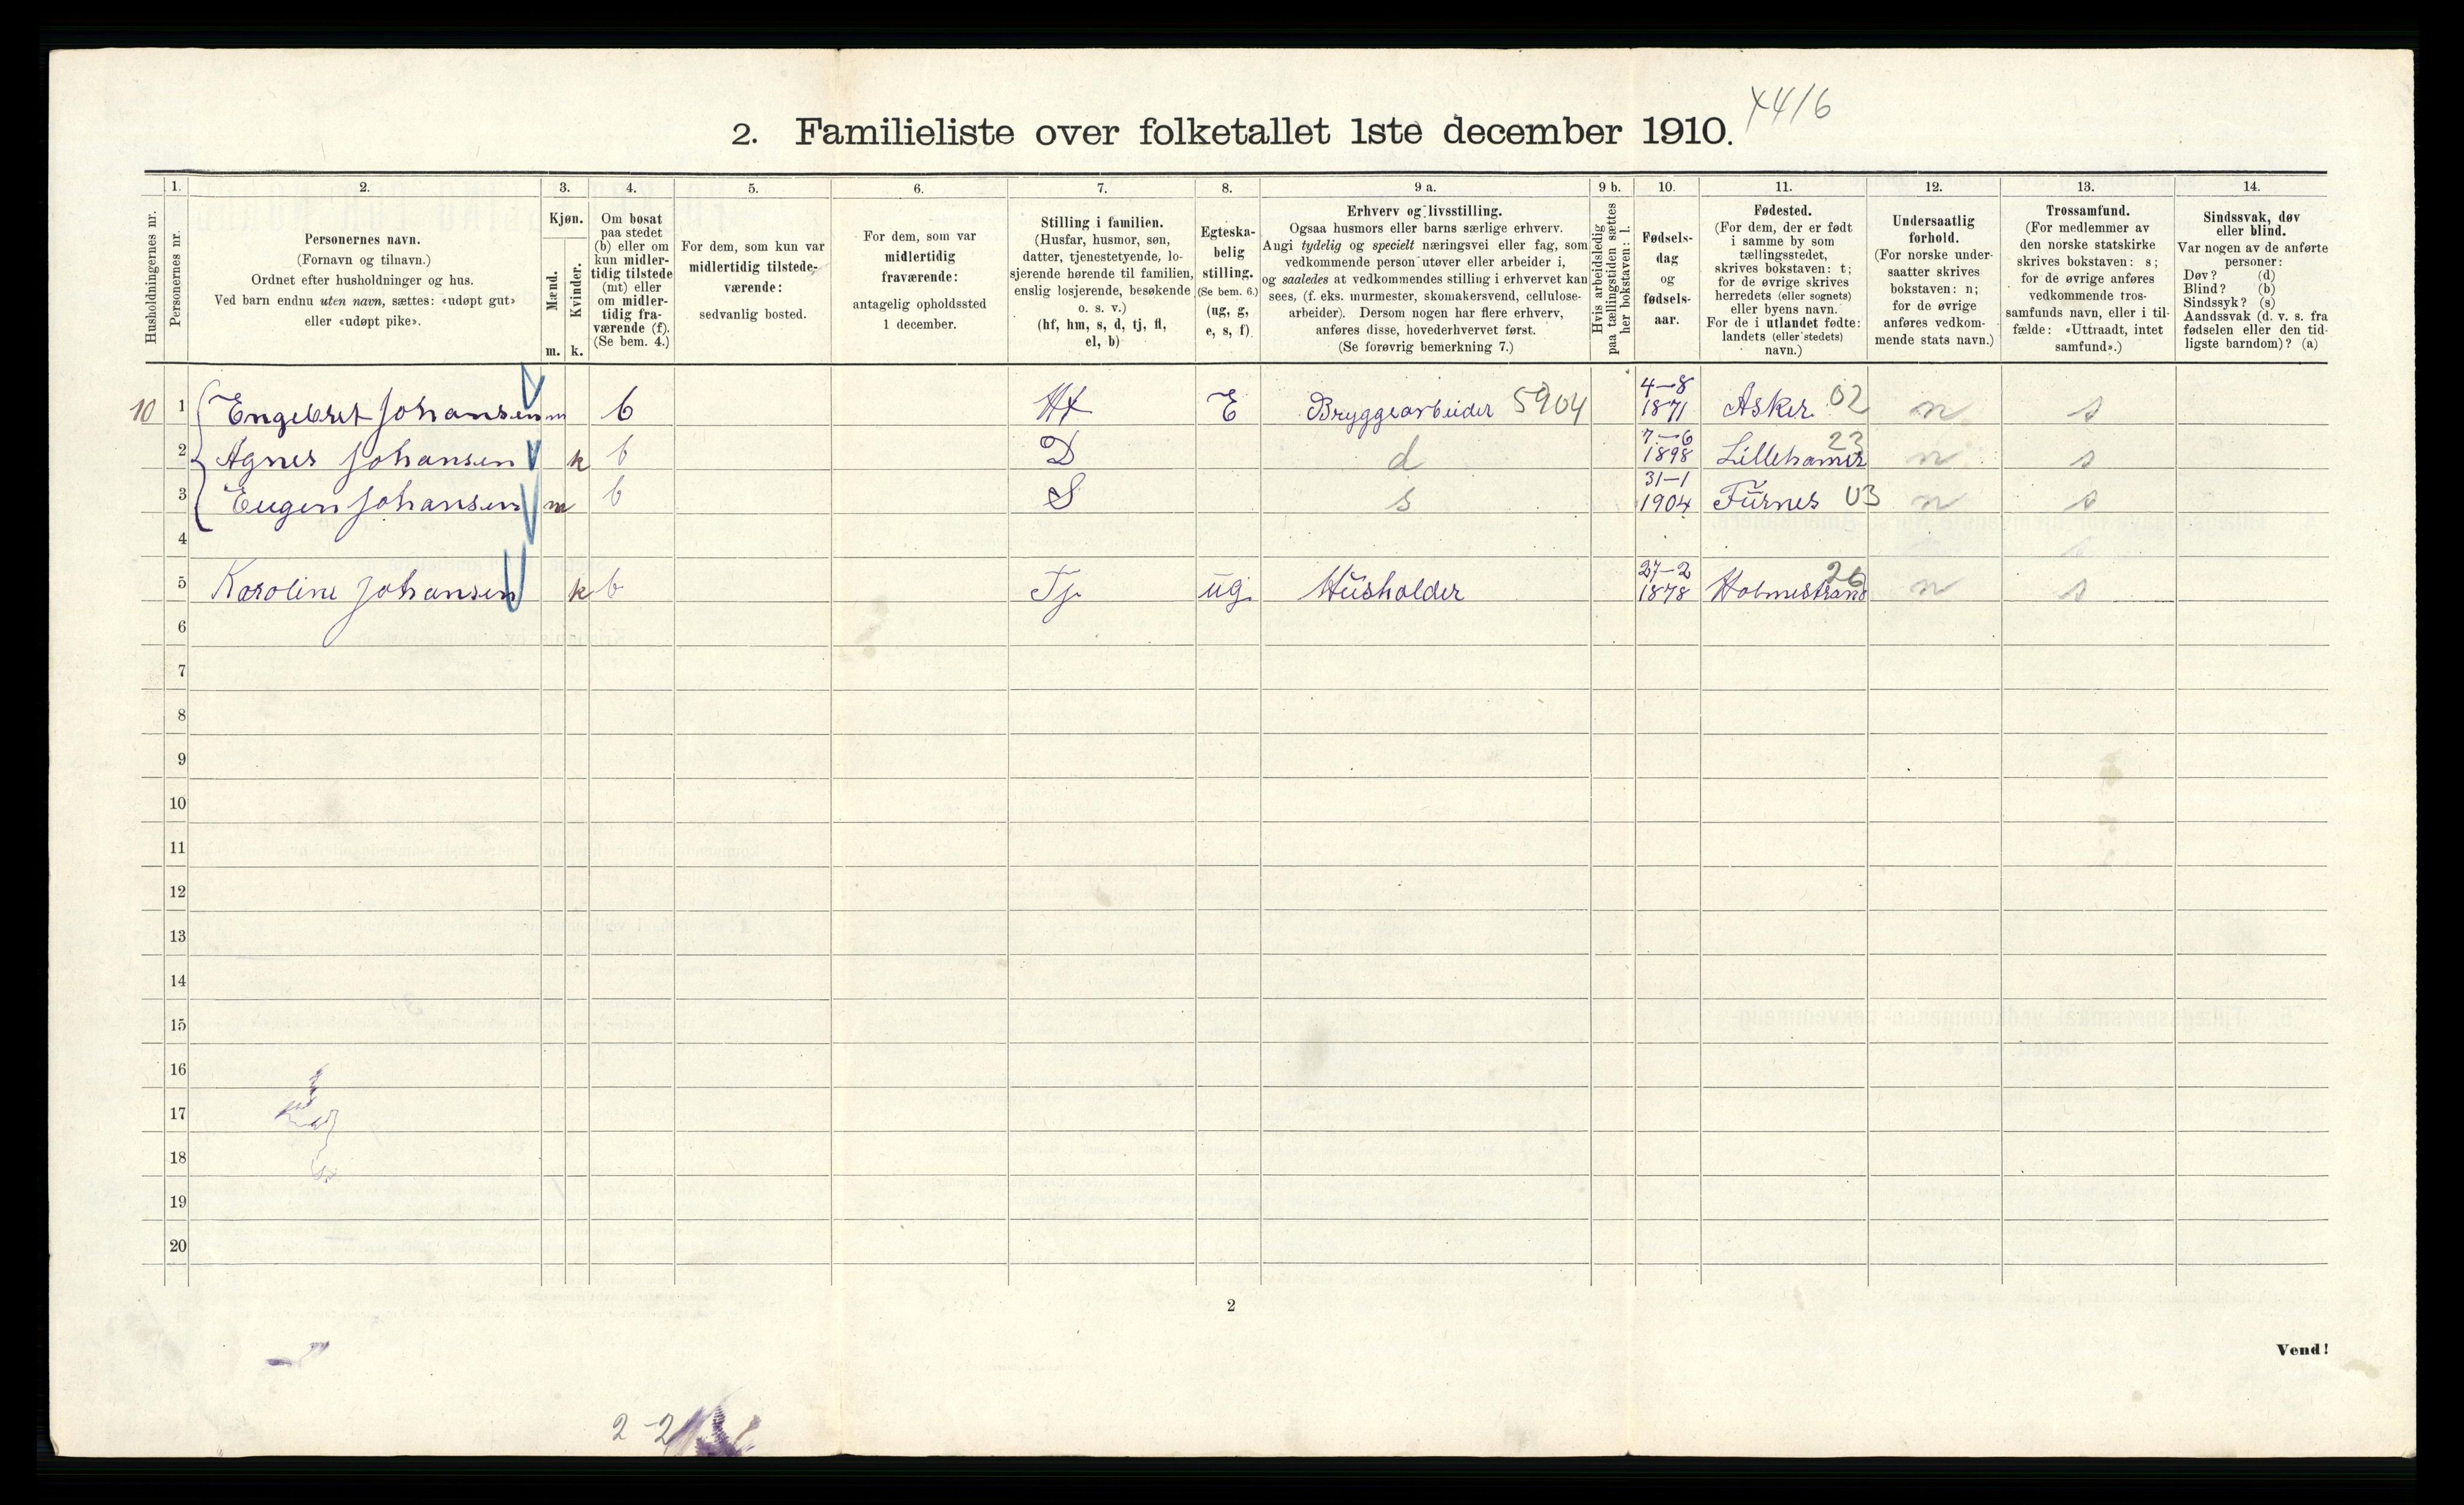 7416
2. Familieliste over folketallet 1ste december 1910.
Husholdningernes nr.
1. Personernes nr.
2. Personernes navn.
(Fornavn og tilnavn.)
Ordnet efter husholdninger og hus.
Ved barn endnu uten navn, sættes: «udøpt gut»
eller «udøpt pike».
3. Kjøn.
Mænd. m.
Kvinder. k.
4. Om bosat
paa stedet
(b) eller om
kun midler-
tidig tilstede
(mt) eller
om midler-
tidig fra-
værende (f).
(Se bem. 4.)
5. For dem, som kun var
midlertidig tilstede-
værende:
sedvanlig bosted.
6. For dem, som var
midlertidig
fraværende:
antagelig opholdssted
1 december.
7. Stilling i familien.
(Husfar, husmor, søn,
datter, tjenestetyende, lo-
sjerende hørende til familien,
enslig losjerende, besøkende
o. s. v.)
(hf, hm, s, d, tj, fl,
el, b)
8. Egteska-
belig
stilling.
(Se bem. 6.)
(ug, g,
e, s, f)
9 a. Erhverv og livsstilling.
Ogsaa husmors eller barns særlige erhverv.
Angi tydelig og specielt næringsvei eller fag, som
vedkommende person utøver eller arbeider i,
og saaledes at vedkommendes stilling i erhvervet kan
sees, (f. eks. murmester, skomakersvend, cellulose-
arbeider). Dersom nogen har flere erhverv,
anføres disse, hovederhvervet først.
(Se forøvrig bemerkning 7.)
9 b. Hvis arbeidsledig
paa tællingstiden sættes
her bokstaven: l.
10. Fødsels-
dag
og
fødsels-
aar.
11. Fødested.
(For dem, der er født
i samme by som
tællingsstedet,
skrives bokstaven: t;
for de øvrige skrives
herredets (eller sognets)
eller byens navn.
For de i utlandet fødte:
landets (eller stedets)
navn.)
12. Undersaatlig
forhold.
(For norske under-
saatter skrives
bokstaven: n;
for de øvrige
anføres vedkom-
mende stats navn.)
13. Trossamfund.
(For medlemmer av
den norske statskirke
skrives bokstaven: s;
for de øvrige anføres
vedkommende tros-
samfunds navn, eller i til-
fælde: «Uttraadt, intet
samfund».)
14. Sindssvak, døv
eller blind.
Var nogen av de anførte
personer:
Døv? (d)
Blind? (b)
Sindssyk? (s)
Aandssvak (d. v. s. fra
fødselen eller den tid-
ligste barndom)? (a)
10 1 Engebret Johansen m b Hf E Bryggearbeider 5904 4-8 1871 Asker 02 n s
2 Agnes Johansen k b D d 7-6 1898 Lillehamer 23 n s
3 Eugen Johansen m b S s 31-1 1904 Furnes 03 n s
4
5 Karoline Johansen k b Tj ug. Husholder 27-2 1878 Holmestrand 26 n s
6
7
8
9
10
11
12
13
14
15
16
17
18
19
20
2
Vend!
2-2